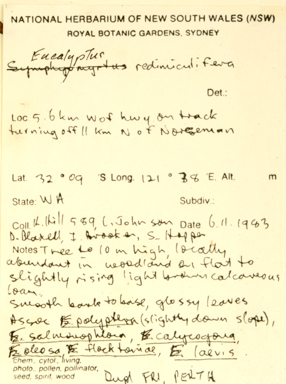 NATIONAL HERBARIUM OF NEW SOUTH WALES (NSW)
ROYAL BOTANIC GARDENS, SYDNEY
Eucalyptus
Symphyomyrtus redimiculifera
Det.:
Loc 5.6 km W of hwy on track
turning off 11 km N of Norseman
Lat. 32 ° 09 'S Long. 121 ° 38 'E. Alt. m
State: WA Subdiv.:
Coll. K. Hill 589 L. Johnson Date 6.11.1983
D. Blaxell, I. Brooker, S. Hopper
Notes Tree to 10 m high locally
abundant in woodland on flat to
slightly rising light brown calcareous
loam.
Smooth bark to base, glossy leaves
Assoc E. polyptera (slightly down slope),
E. salmonophloia, E. calycogona,
E. oleosa, E. flocktoniae, E. laevis.
Chem, cytol, living,
photo, pollen, pollinator,
seed, spirit, wood
Dupl FRI, PERTH